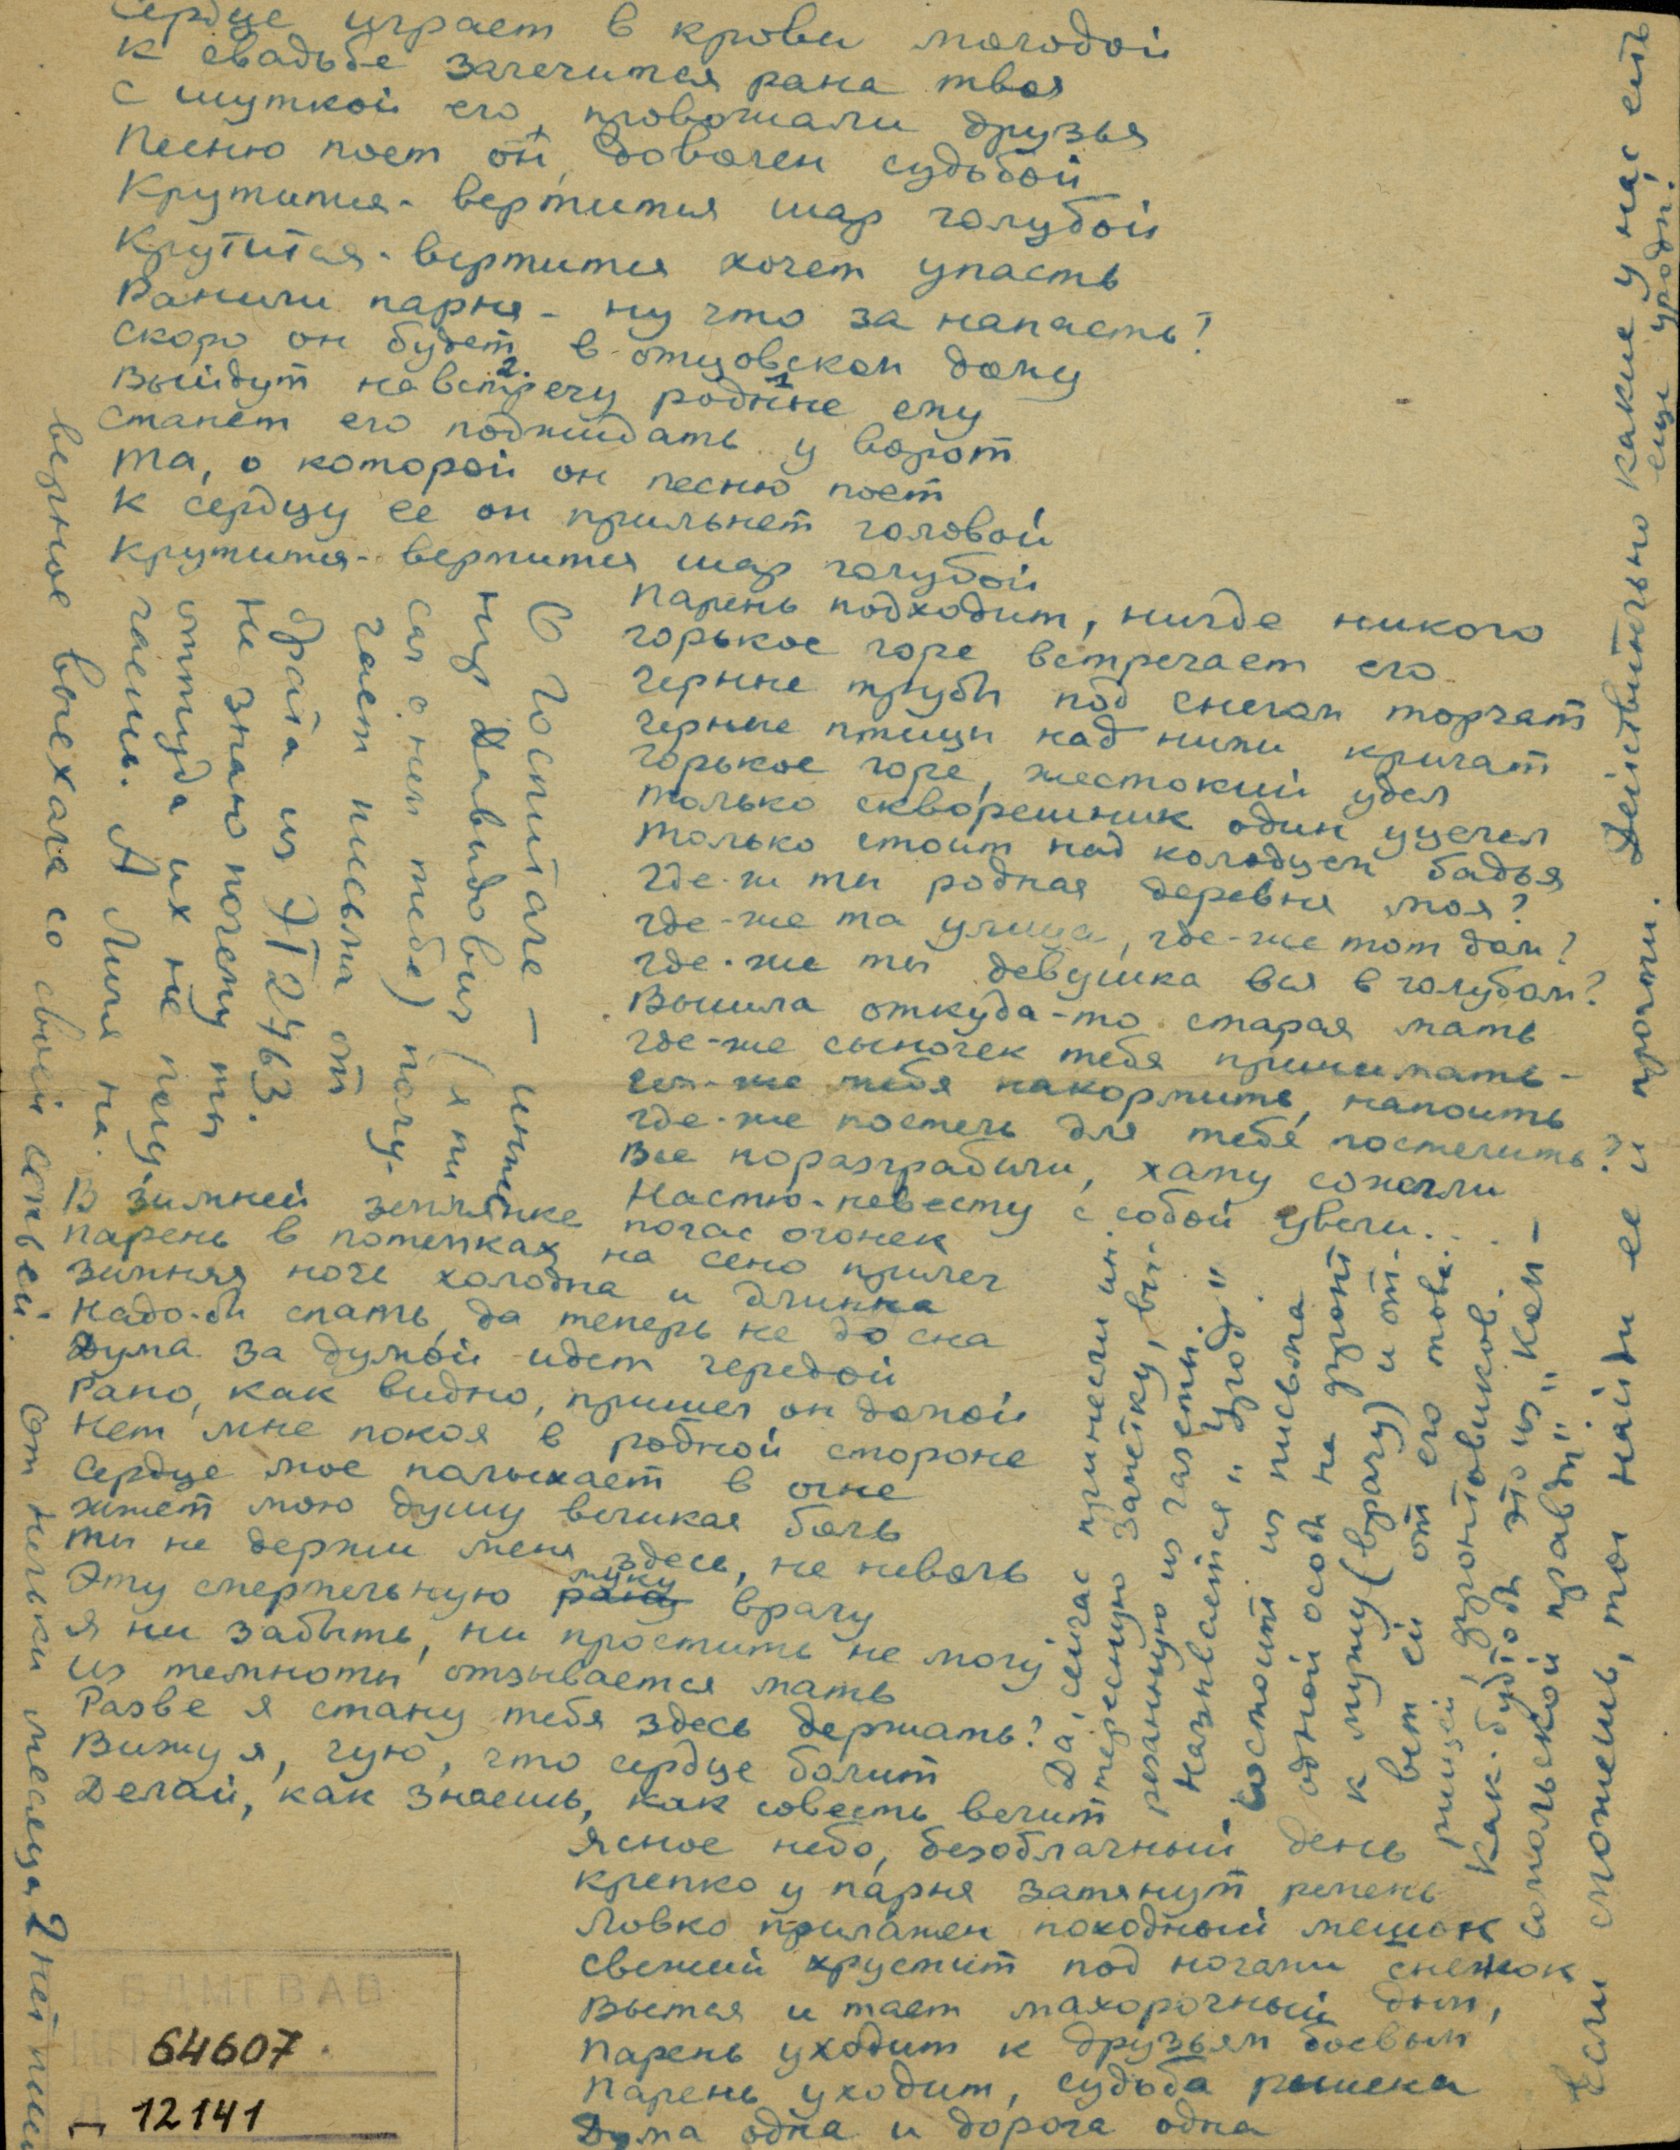 Сердце играет в крови молодой
К свадьбе залечится рана твоя
С шуткой его провожали друзья
Песню поет он, доволен судьбой
Крутится-вертится шар голубой
Крутится-вертится хочет упасть
Ранили парня - ну что за напасть!
скоро он будет в отцовском дому
выйдут навстречу 2. родные 1 ему
станет его поджидать у ворот
та, о которой он песню поет
К сердцу ее он прильнет головой
Крутится-вертится шар голубой
Парень подходит, нигде никого
горькое горе встречает его
черные трубы под снегом торчат
черные птицы над ними кричат
горькое горе, жестокий удел
только скворешник один уцелел
только стоит над колодцем бадья
Где-ж ты родная деревня моя?
где-же та улица, где-же тот дом?
где-же ты девушка вся в голубом?
Вышла откуда-то старая мать
где-же сыночек тебя принимать-
чем-же тебя накормить, напоить
где-же постель для тебя постелить?
Все поразграбили, хату сожгли
Настю-невесту с собой увели....
В зимней землянке погас огонек
парень в потемках на сено прилег
зимняя ночь холодна и длинна
Надо-бы спать, да теперь не до сна
Дума за думой идет чередой
Рано, как видно, пришел он домой
Нет мне покоя в родной стороне
Сердце мое полыхает в огне
жжет мою душу великая боль
ты не держи меня здесь, не неволь
Эту смертельную рану муку врагу
Я ни забыть, ни простить не могу
Из темноты отзывается мать
Разве я стану тебя здесь держать?
Вижу я, чую, что сердце болит
Делай, как знаешь, как совесть велит
Ясное небо, безоблачный день
крепко у парня затянут ремень
Ловко прилажен походный мешок
свежий хрустит под ногами снежок
Вьется и тает махорочный дым,
Парень уходит к друзьям боевым
Парень уходит, судьба решена
Дума одна и дорога одна
В госпитале - инже
нер Давидович (я пи
сал о нем тебе) полу-
чает письма от
брата из ЭГ 2463.
Не знаю почему ты
оттуда их не полу-
чаешь. А Лиля на-
верное выехала со своей семьей. От Нильки месяца 2 нет пись
Да, сейчас принесли ин-
тересную заметку, вы-
резанную из газеты.
Называется "Урод".
Состоит из письма
одной особы на фронт
к мужу (врачу) и от-
вет ей от его това-
рищей, фронтовиков.
Как-будто бы это из "Ком-
сомольской правды".
Если сможешь, то найди ее и прочти. Действительно какие у нас есть
еще уроды.
64607
12141